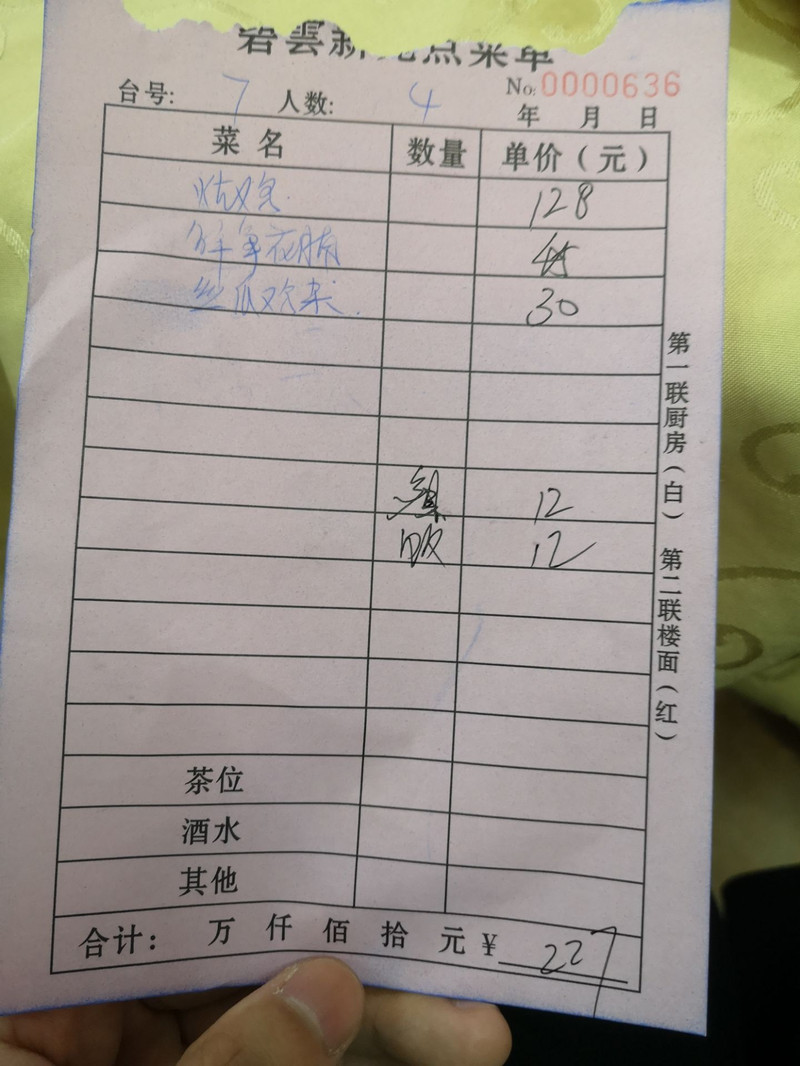 点菜单
台号: 7 人数: 4 No: 0000636
年 月 日
菜名 数量 单价（元）
128
45
丝瓜 30
12
饭 12
茶位
酒水
其他
合计： 万 仟 佰 拾 元 ¥ 227
第一联厨房（白） 第二联楼面（红）